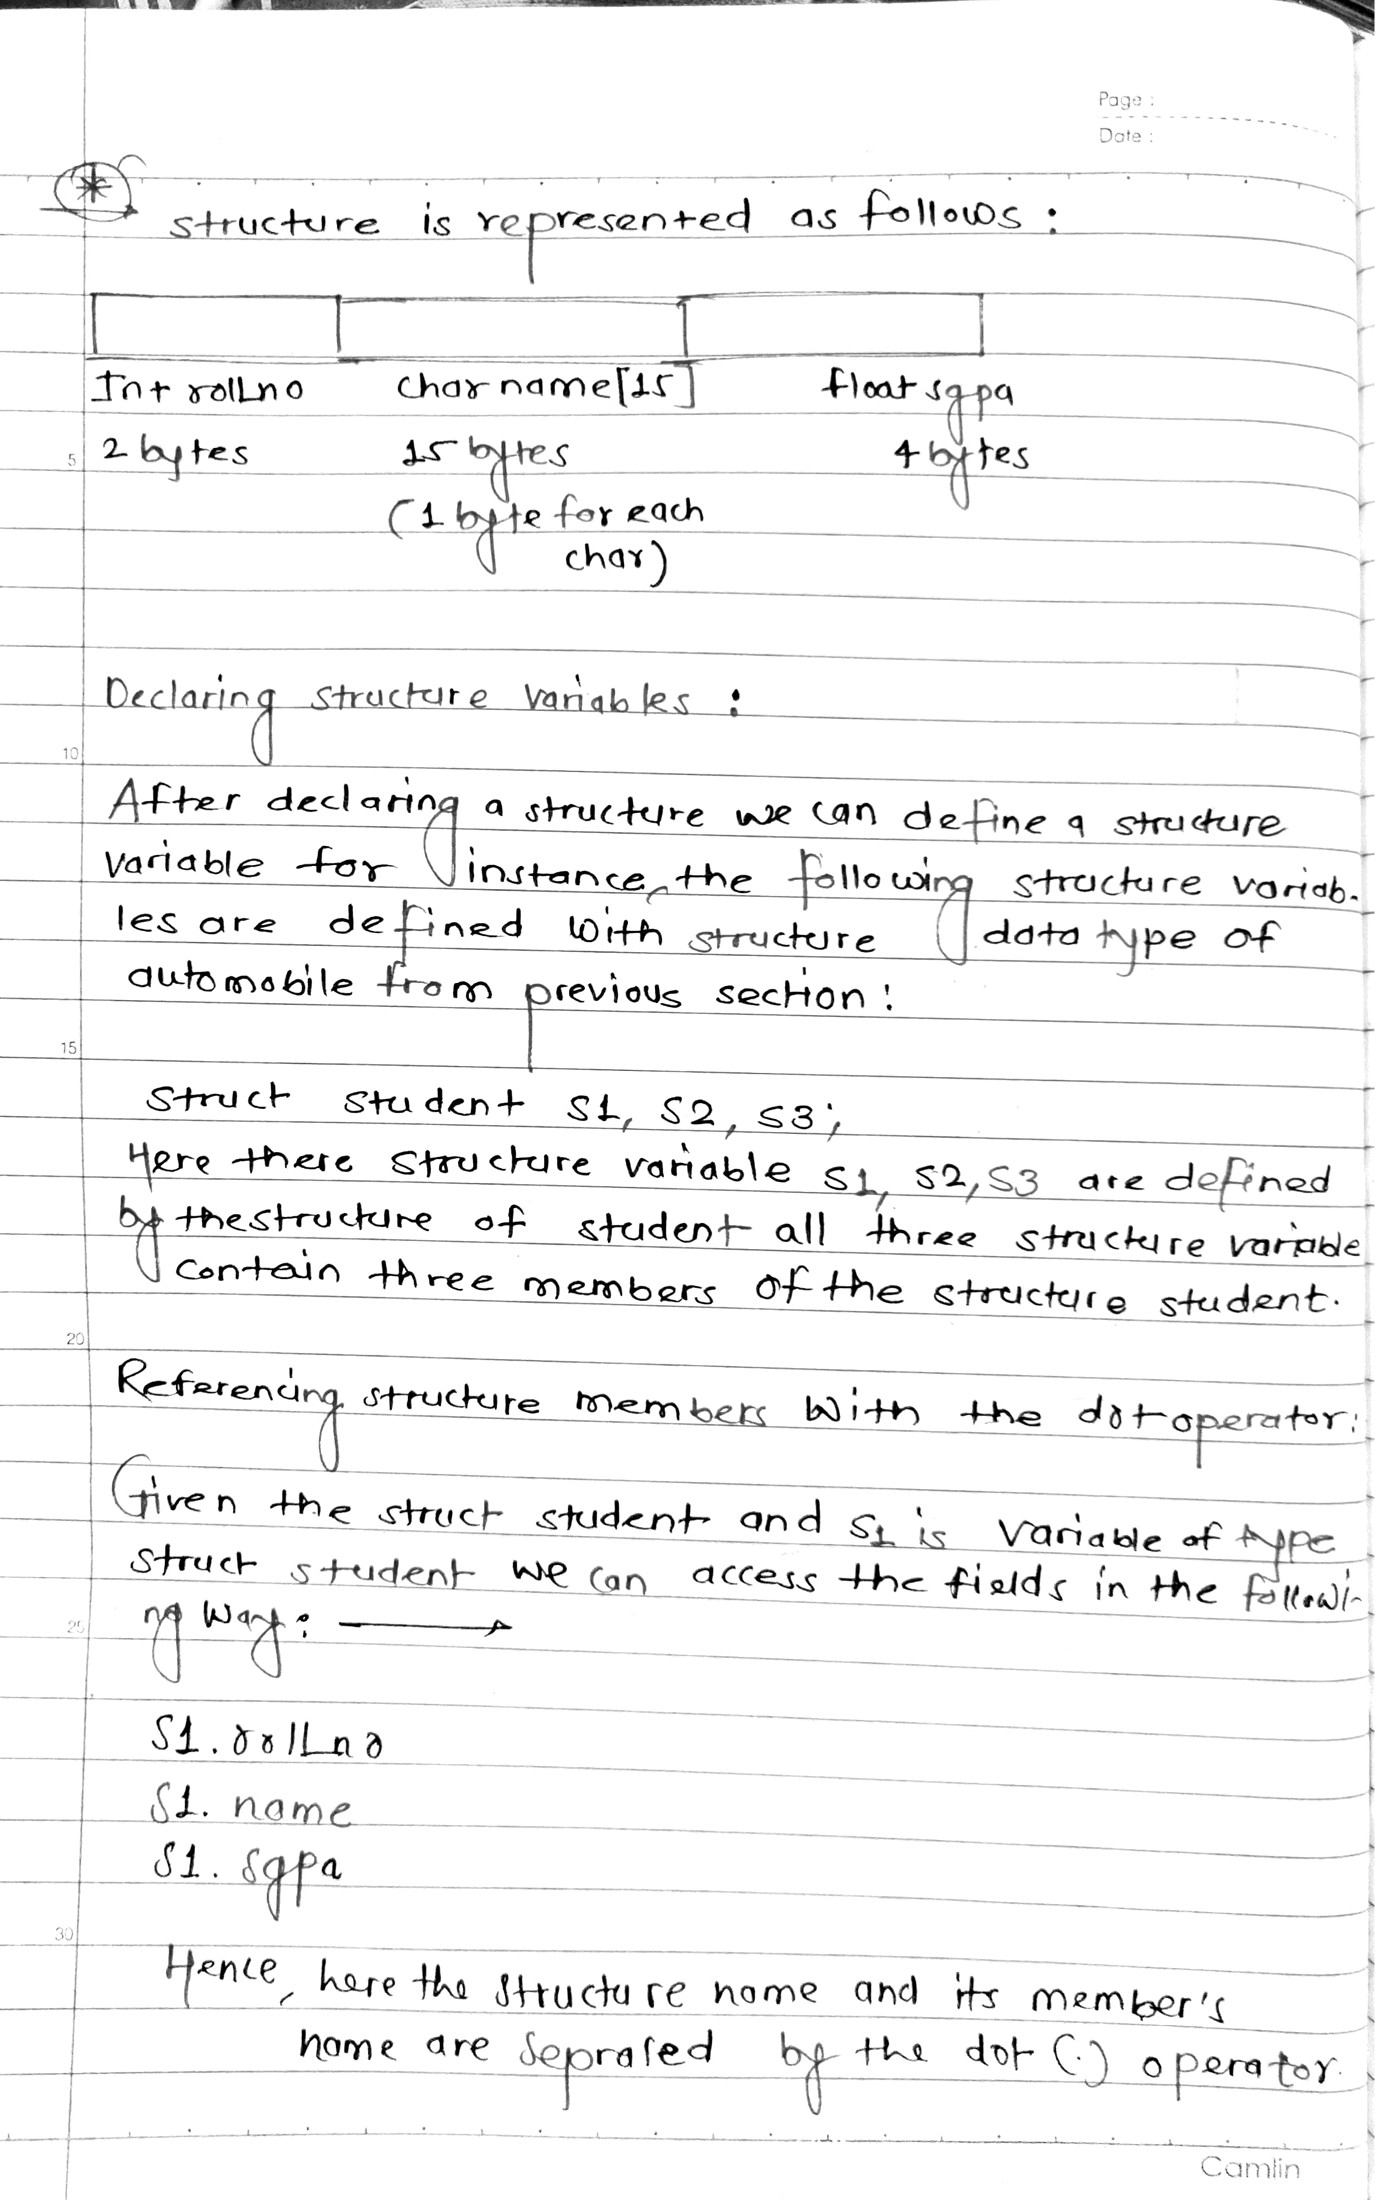 Page :
Date :
*
structure is represented as follows :
Int rollno char name[15] float sgpa
5 2 bytes 15 bytes 4 bytes
(1 byte for each
char)
Declaring structure variables :
10
After declaring a structure we can define a structure
variable for instance, the following structure variab-
les are defined with structure data type of
automobile from previous section :
15
struct student S1, S2, S3;
Here there structure variable S1, S2, S3 are defined
by the structure of student all three structure variable
contain three members of the structure student.
20
Referencing structure members with the dot operator:
Given the struct student and S1 is variable of type
struct student we can access the fields in the followi-
25 ng way :
S1. rollno
S1. name
S1. sgpa
30
Hence, here the structure name and its member's
name are seprated by the dot (.) operator.
Camlin